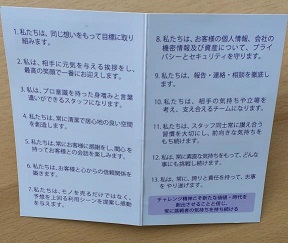 1. 私たちは、同じ想いをもって目標に取り
組みます。
2. 私たちは、相手に元気を与える挨拶をし、
最高の笑顔で一番にお迎えします。
3. 私たちは、プロ意識を持った身嗜みと言葉
遣いができるスタッフになります。
4. 私たちは、常に清潔で居心地の良い空間
を創造します。
5. 私たちは、常にお客様に感謝をし、関心を
持ってお客様との会話を楽しみます。
6. 私たちは、お客様と心からの信頼関係を
築きます。
7. 私たちは、モノを売るだけではなく、
予想を上回る利用シーンを提案し感動
を与えます。
8. 私たちは、お客様の個人情報、会社の
機密情報及び資産について、プライ
バシーとセキュリティを守ります。
9. 私たちは、報告・連絡・相談を徹底し
ます。
10. 私たちは、相手の気持ちや立場を
考え、支え合えるチームになります。
11. 私たちは、スタッフ同士常に讃え合う
習慣を大切にし、前向きな気持ちを
もち続けます。
12. 私は、常に素直な気持ちをもって、どんな
事にも挑戦し続けます。
13. 私は、常に、誇りと責任を持って、お客
を守り遂げます。
チャレンジ精神こそ新たな価値・時代を
創出させることと信じ、
常に挑戦者の気持ちを持ち続ける